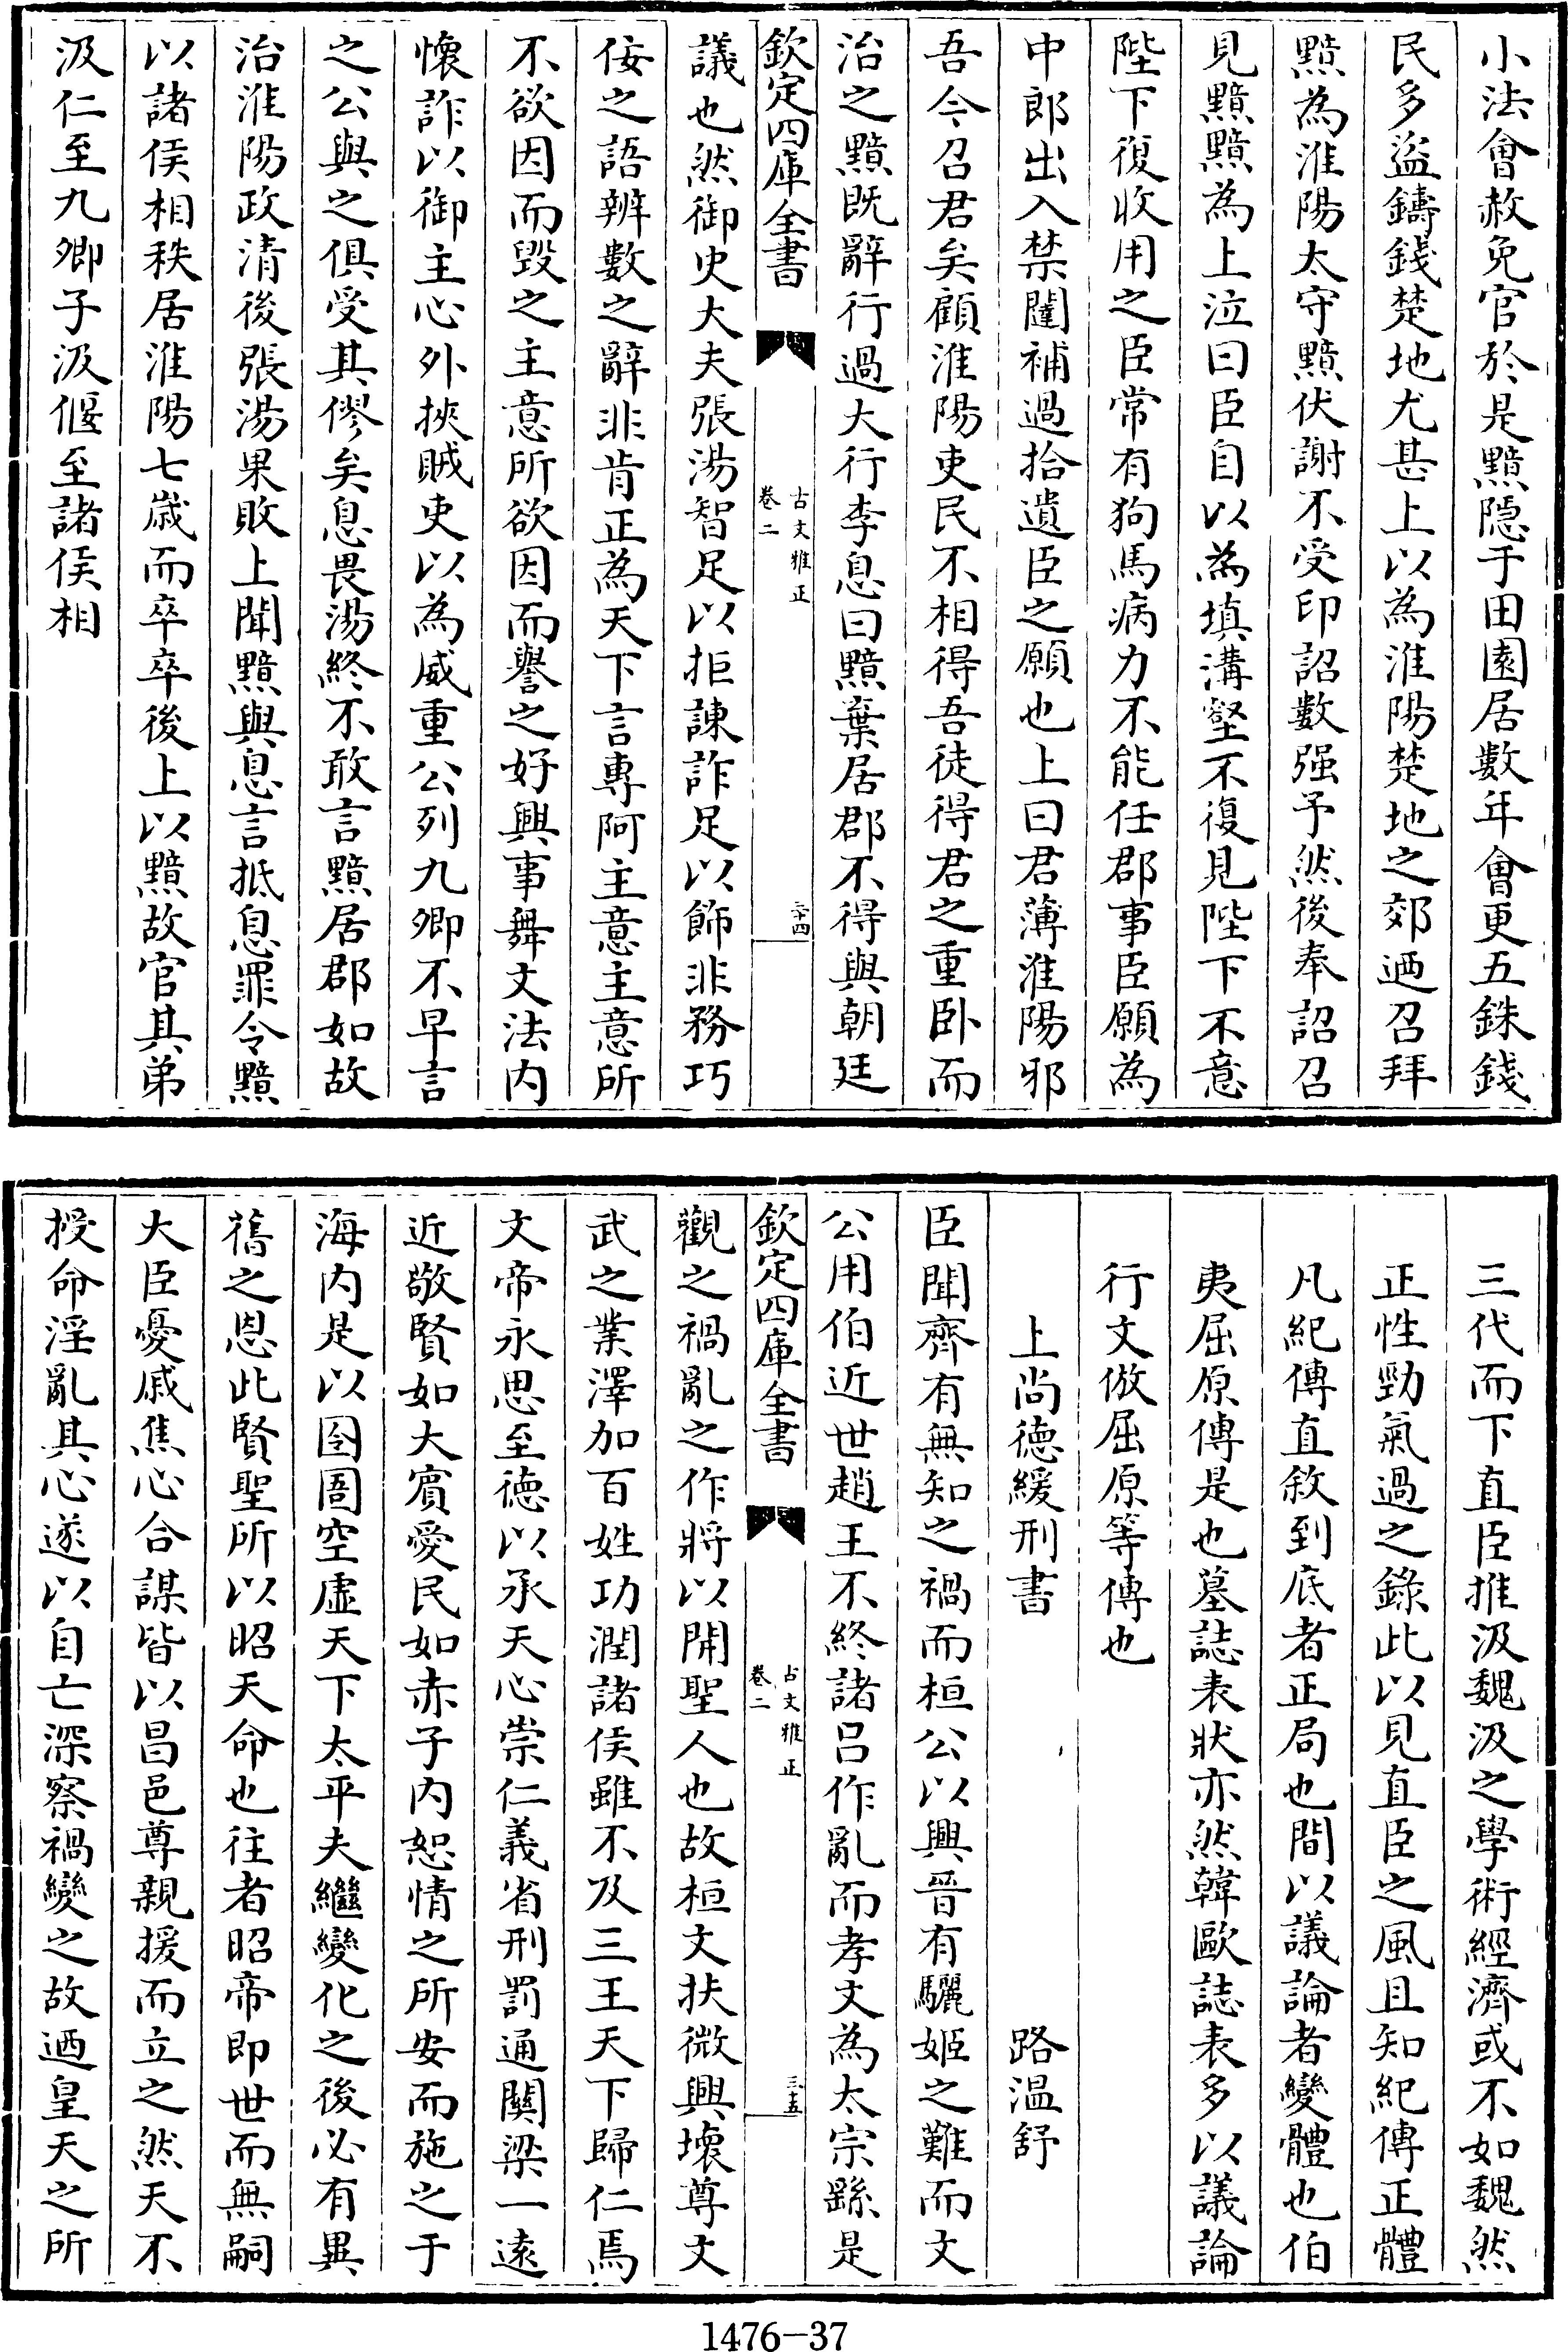 小法會赦免官於是黯隠于田園居數年會更五銖錢
民多盜鑄錢楚地尤甚上以為淮陽楚地之郊迺召拜
黯為淮陽太守黯伏謝不受印詔數强予然後奉詔召
見黯黯為上泣曰臣自以為填溝壑不復見陛下不意
陛下復收用之臣常有狗馬病力不能任郡事臣願為
中郎出入禁闥補過拾遺臣之願也上曰君薄淮陽邪
吾今召君矣顧淮陽吏民不相得吾徒得君之重卧而
治之黯既辭行過大行李息曰黯棄居郡不得與朝廷
欽定四庫全書
古文雅正
卷二
三十四
議也然御史大夫張湯智足以拒諫詐足以飾非務巧
佞之語辨數之辭非肯正為天下言專阿主意主意所
不欲因而毀之主意所欲因而譽之好興事舞文法内
懷詐以御主心外挾賊吏以為威重公列九卿不早言
之公與之俱受其僇矣息畏湯終不敢言黯居郡如故
治淮陽政清後張湯果敗上聞黯與息言抵息罪令黯
以諸侯相秩居淮陽七歲而卒卒後上以黯故官其弟
汲仁至九卿子汲偃至諸侯相
三代而下直臣推汲魏汲之學術經濟或不如魏然
正性勁氣過之錄此以見直臣之風且知紀傳正體
凡紀傳直敘到底者正局也間以議論者變體也伯
夷屈原傳是也墓誌表狀亦然韓歐誌表多以議論
行文倣屈原等傳也
上尚德緩刑書
路溫舒
臣聞齊有無知之禍而桓公以興晉有驪姬之難而文
公用伯近世趙王不終諸呂作亂而孝文為太宗繇是
欽定四庫全書
古文雅正
卷二
三十五
觀之禍亂之作將以開聖人也故桓文扶微興壞尊文
武之業澤加百姓功潤諸侯雖不及三王天下歸仁焉
文帝永思至德以承天心崇仁義省刑罰通關梁一遠
近敬賢如大賓愛民如赤子内恕情之所安而施之于
海内是以囹圄空虛天下太平夫繼變化之後必有異
舊之恩此賢聖所以昭天命也往者昭帝即世而無嗣
大臣憂戚焦心合謀皆以昌邑尊親援而立之然天不
授命淫亂其心遂以自亡深察禍變之故迺皇天之所
1476-37